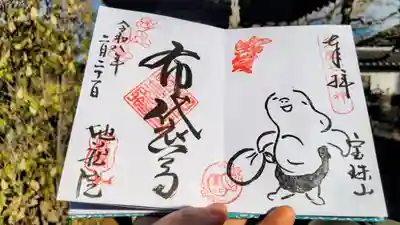 奉拝
宝珠山
布袋尊
令和八年
二月二十一日
地蔵院